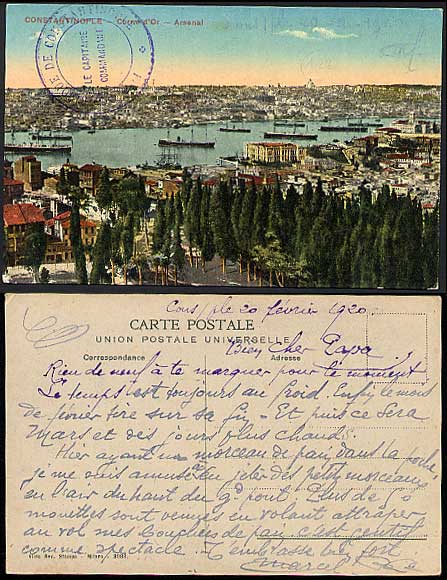 CONSTANTINOPLE Corne d'Or — Arsenal
LE CAPITAINE
COMMANDANT
Cons/ple 20 février 1920
CARTE POSTALE
UNION POSTALE UNIVERSELLE
Bien Cher Papa
Correspondance Adresse
Rien de neuf à te marquer pour le moment
Le temps est toujours au froid. Enfin le mois
de février tire sur sa fin — Et puis ce sera
Mars et des jours plus chauds.
Hier ayant un morceau de pain dans la poche
je me suis amusé à en jeter des petits morceaux
en l'air du haut du gd pont. Plus de
mouettes sont venues en volant attraper
au vol mes bouchées de pain c'est
comme spectacle. T'embrasse bien fort
Marcel